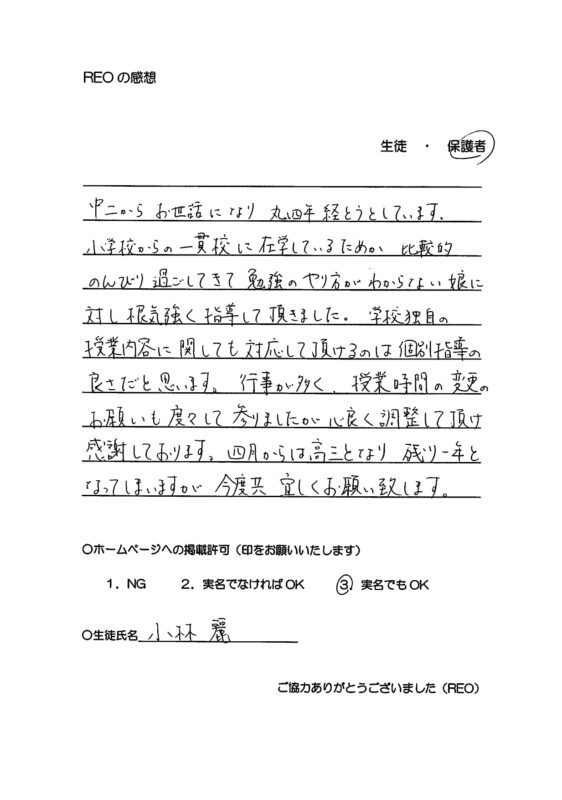 REOの感想
生徒 ・ 保護者
中二から お世話になり 丸四年 経とうとしています.
小学校からの一貫校に在学しているためか 比較的
のんびり過ごしてきて 勉強のやり方がわからない娘に
対し根気強く指導して頂きました。 学校独自の
授業内容に関しても対応して頂けるのは個別指導の
良さだと思います。 行事が多く、授業時間の変更の
お願いも度々して参りましたが心良く調整して頂け
感謝しております。四月からは高三となり 残り一年と
なってしまいますが 今度共 宜しくお願い致します。
〇ホームページへの掲載許可（印をお願いいたします）
1．NG 2．実名でなければOK 3．実名でもOK
〇生徒氏名 小林 麗
ご協力ありがとうございました（REO）